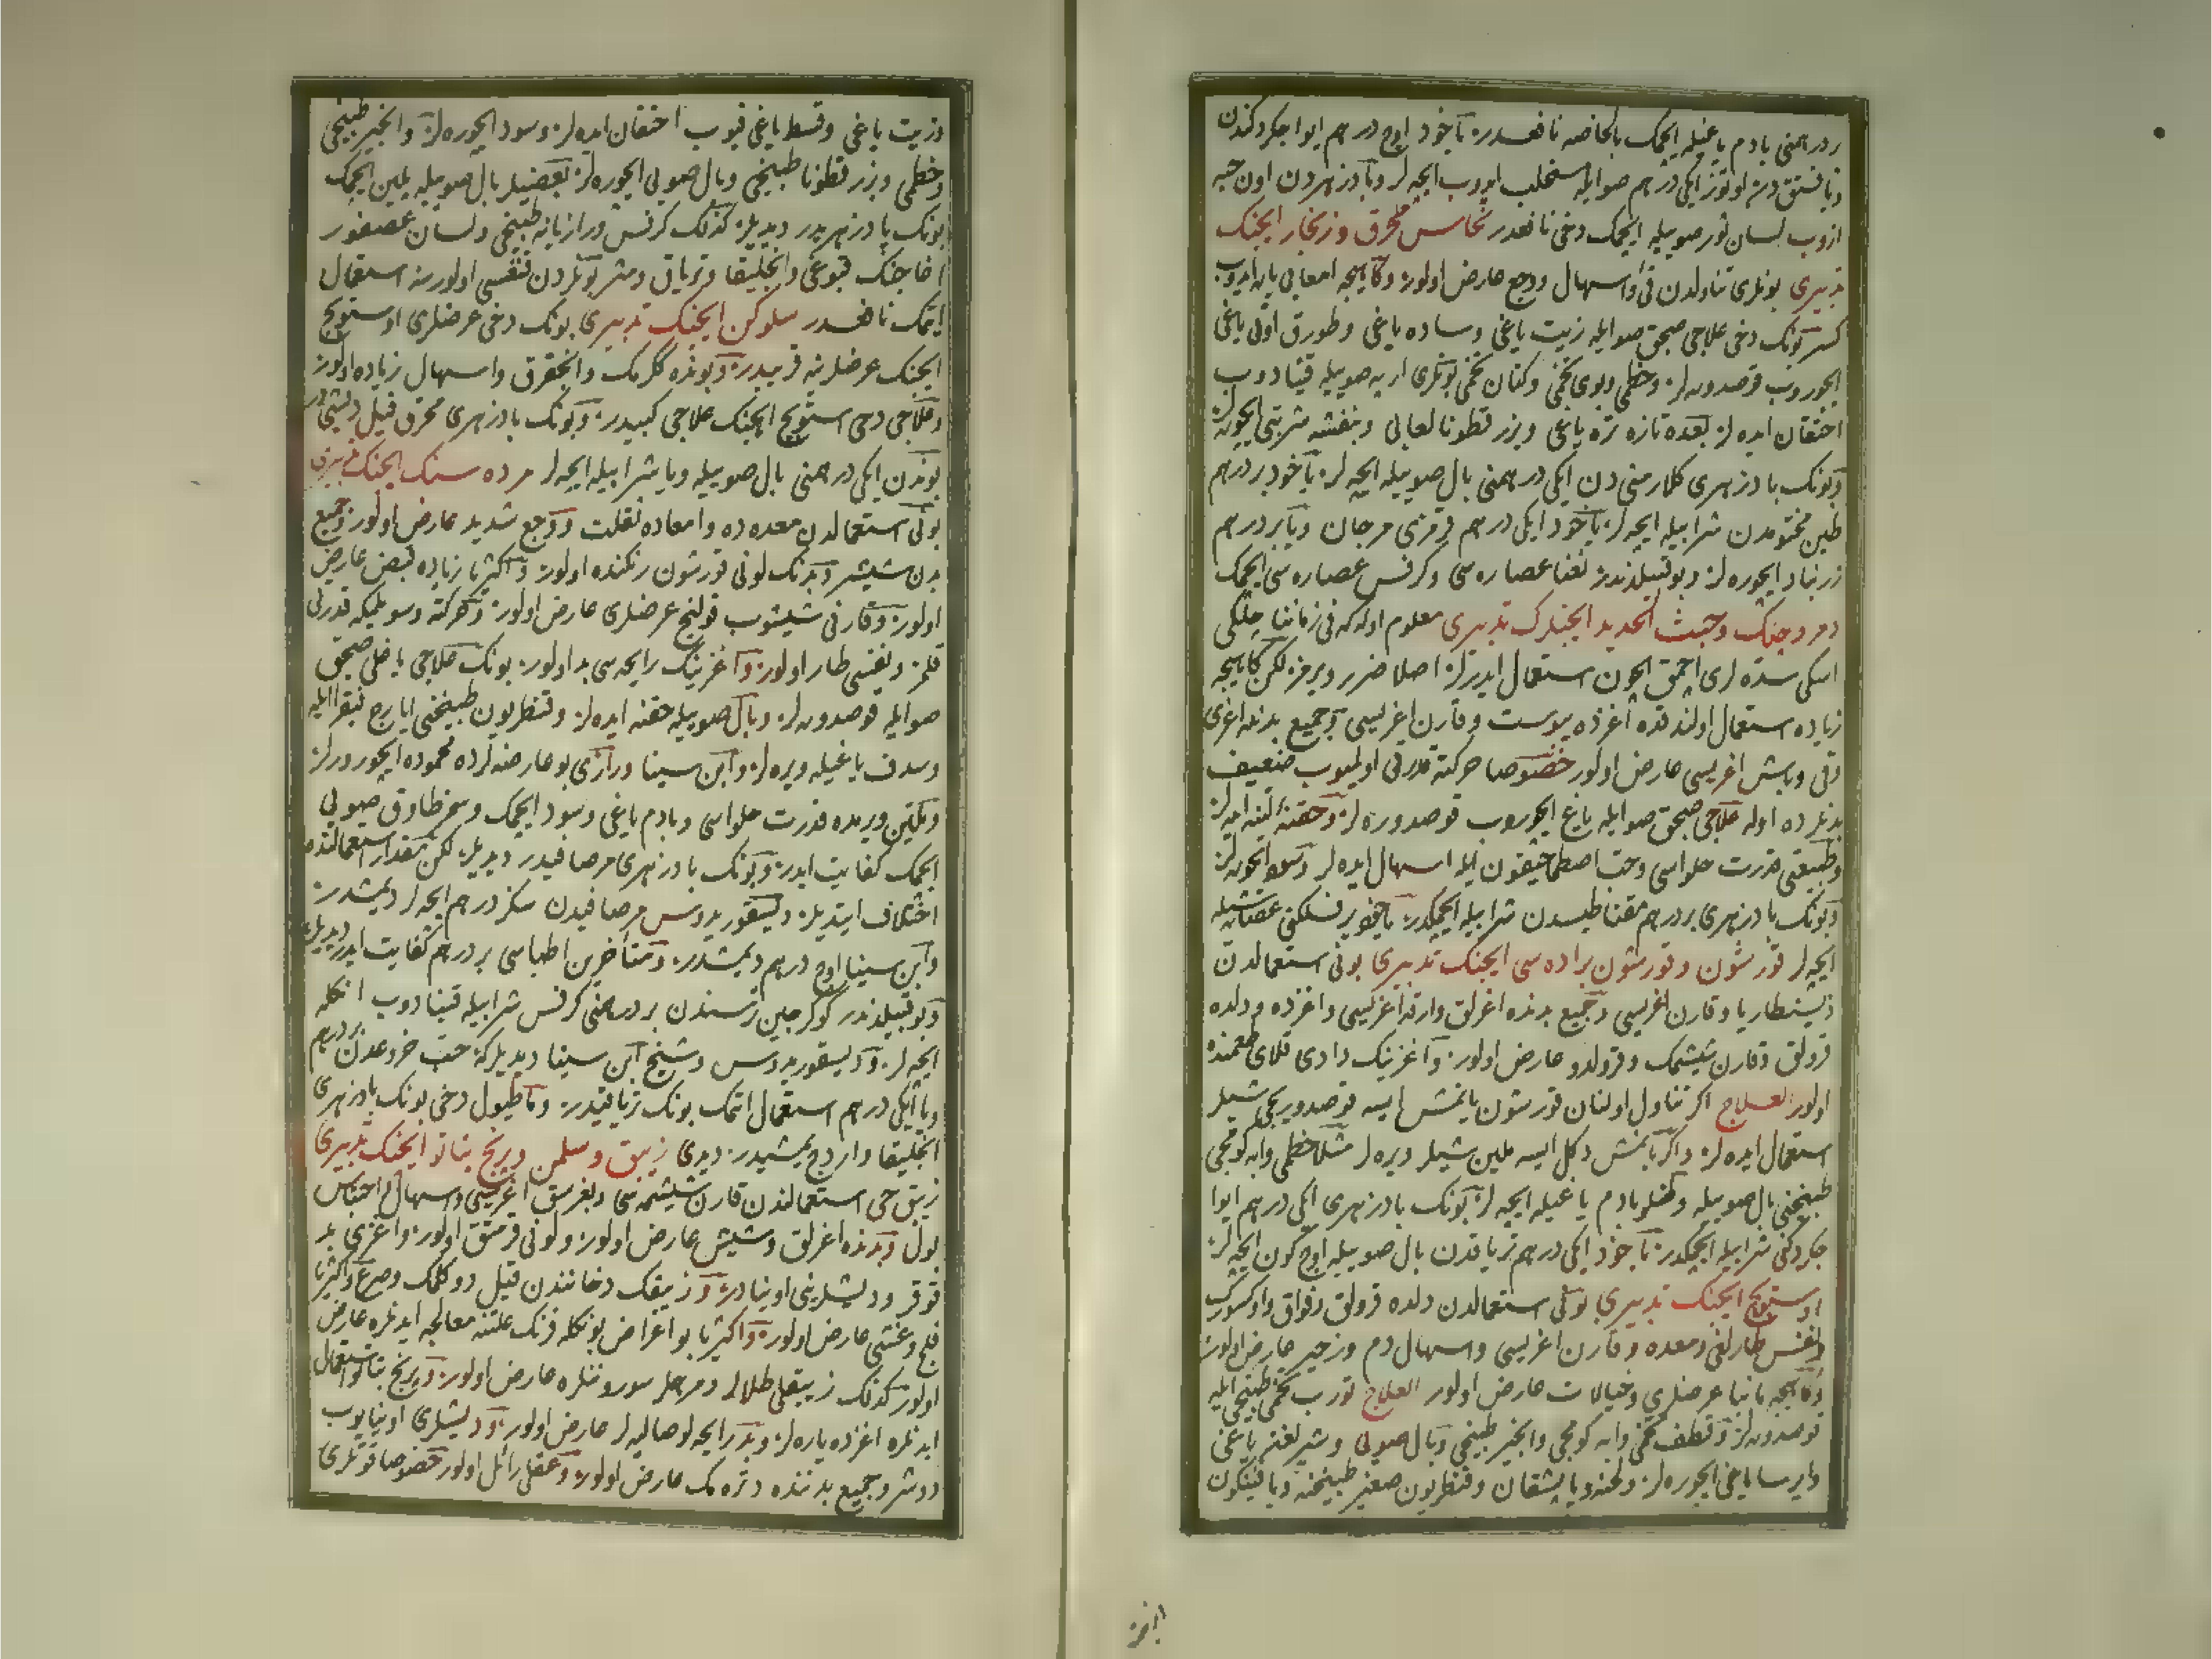 بر درهمنی بادم یاغیله ایچمك بالخاصه نافعدر یاخود اوچ درهم ایوا جکردکندن
ازوب لسان ثور صوییله ایچمك دخی نافعدر نحاس محرق و زنجار ایچنك
تدبیری بونلری تناولدن قی و اسهال و وجع عارض اولور و کاهیجه امعایی یاره ایدوب
کسر بونك دخی علاجی صیجق صوایله زیت یاغی و ساده یاغی و طورق اوتی یاغی
ایچوروب قوصدوره لر و خطمی و بوی تخمی و کتان تخمی بونلری اریه صوییله قینادوب
احتقان ایده لر بعده تازه تره یاغی و بزر قطونا لعابی و بنفشه شربتی ایچوره لر
و بونك بادزهری کلارمنی دن ایکی درهمنی بال صوییله ایچه لر یاخود بر درهم
طین مختومدن شرابیله ایچه لر یاخود ایکی درهم قرمزی مرجان و یا بر درهم
زرنباد ایچوره لر و بو قبیلدندر نعنا عصاره سی و کرفس عصاره سی ایچمك
دمر و جنك و خبث الحدید ایچنلرك تدبیری معلوم اوله که فی زماننا چلیکی
اسکی سده لری اچمق ایچون استعمال ایدرلر اصلا ضرر ویرمز لکن کاهیجه
زیاده استعمال اولندقده اغزده یبوست و قارن اغریسی و جمیع بدنده اغری
و قی و باش اغریسی عارض اولور خصوصا حرکته قدرتی اولمیوب ضعیف
بدنلرده اوله علاجی صیجق صوایله یاغ ایچوروب قوصدوره لر و حقنه لینه ایده لر
و طبیعتی قدرت حلواسی و حب اصطماخیقون ایله اسهال ایده لر
و بونك بادزهری بر درهم مقناطیسدن شرابیله ایچمکدر
ایچه لر قورشون و قورشون براده سی ایچنك تدبیری بونی استعمالدن
ذیسنطاریا و قارن اغریسی و جمیع بدنده اغرلق و ارقه اغریسی و اغزده و دلده
قرولق و قارن شیشمك و قرولدو عارض اولور و اغزینك دادی قلای طعمنده
اولور العلاج اکر تناول اولنان قورشون یانمش ایسه قوصدوریجی شیلر
استعمال ایده لر و اکر یانمش دکل ایسه ملین شیلر ویره لر مثلا خطمی و ابه کومجی
طبیخنی بال صوییله و تخلو بادم یاغیله ایچه لر بونك بادزهری ایکی درهم ایوا
جکردکنی شرابیله ایچمکدر یاخود ایکی درهم تریاقدن بال صوییله اوچ کون ایچه لر
اوستوبج ایچنك تدبیری بونی استعمالدن دلده قرولق و فواق و اوکسورك
و نفس طارلغی و معده و قارن اغریسی و اسهال دم و زحیر عارض اولور
و کاهیجه مانیا عرضلری و خیالات عارض اولور العلاج تورب تخمی طبیخی ایله
قوصدوره لر و قطف تخمی و ابه کومجی و انجیر طبیخی و بال صویی و شیرلغن یاغی
و ایرسا یاغی ایچوره لر و قنطریون صغیر طبیخنه
وزیت یاغی و قسط یاغی قیوب احتقان ایده لر و سود ایچوره لر و انجیر طبیخی
و خطمی و بزر قطونا طبیخی و بال صویی ایچوره لر بعضیلر بال صوییله یلمین ایچمك
بونك بادزهریدر دیدیلر کذلك کرفس و رازیانه طبیخی و لسان عصفور
اغاجنك قبوغی و انجلیقا و تریاق و مثر بونلردن قنغیسی اولورسه استعمال
ایتمك نافعدر سلوکن ایچنك تدبیری بونك دخی عرضلری اوستوبج
ایچنك عرضلرینه قریبدر و بونده ککرمك و انجقرق و اسهال زیاده اولور
و علاجی دخی استوبج ایچنك علاجی کبیدر و بونك بادزهری محرق فیل دیشیدر
بوندن ایکی درهمنی بال صوییله و یا شرابیله ایچه لر مرده سنك ایچنك تدبیری
بونی استعمالدن معده ده و امعاده ثقلت و وجع شدید عارض اولور و جمیع
بدن شیشر و بدنك لونی قورشون رنکنده اولور و اکثریا زیاده قبض عارض
اولور و قارنی شیشوب قولنج عرضلری عارض اولور و حرکته و سویلمکه قدرتی
قلمز و نفسی طار اولور و اغزینك رایحه سی بد اولور بونك علاجی یاغلی صیجق
صوایله قوصدوره لر و بال صوییله حقنه ایده لر و قنطریون طبیخی ایارج فیقرا ایله
و سدف یاغیله ویره لر و ابن سینا و رازی بو عارضه لرده محموده ایچوررلر
و تلیین ویرمده قدرت حلواسی و بادم یاغی و سود ایچمك و سمز طاوق صویی
ایچمك کفایت ایدر و بونك بادزهری مرصافیدر دیدیلر لکن مقدار استعمالنده
اختلاف ایتدیلر دیسقوریدوس مرصافیدن سکز درهم ایچه لر دیمشدر
و ابن سینا اوچ درهم دیمشدر و متأخرین اطباسی بر درهم کفایت ایدر دیدیلر
و بو قبیلدندر کوکرجین ترسندن بر درهمنی کرفس شرابیله قینادوب انکله
ایچه لر و دیسقوریدوس و شیخ ابن سینا دیدیلر که حب خروعدن بر درهم
و یا ایکی درهم استعمال ایتمك بونك تریاقیدر و ماطیول دخی بونك بادزهری
انجلیقا و اردج یمشیدر دیدی زیبق و سلمن و برنج بناتو ایچنك تدبیری
زیبق حی استعمالندن قارن شیشمه سی و بغرسق اغریسی و اسهال و احتباس
بول و بدنده اغرلق و شیش عارض اولور و لونی قرمتق اولور و اغزی بد
قوقر و دیشلرینی اوینادر و زیبقك دخانندن فیل دوکلمك و صرع و اکثریا
فلج و غشی عارض اولور و اکثریا بو اعراض بونکله فرنك علتنه معالجه ایدنلره عارض
اولور کذلك زیبقلی طلالر و مرهملر سورونلره عارض اولور و برنج بناتو استعمال
ایدنلره اغزده یاره لر و بد رایحه لو صالیه لر عارض اولور و دیشلری اوینایوب
دوشر و جمیع بدننده دتره مك عارض اولور و عقلی زائل اولور خصوصا قوتلری